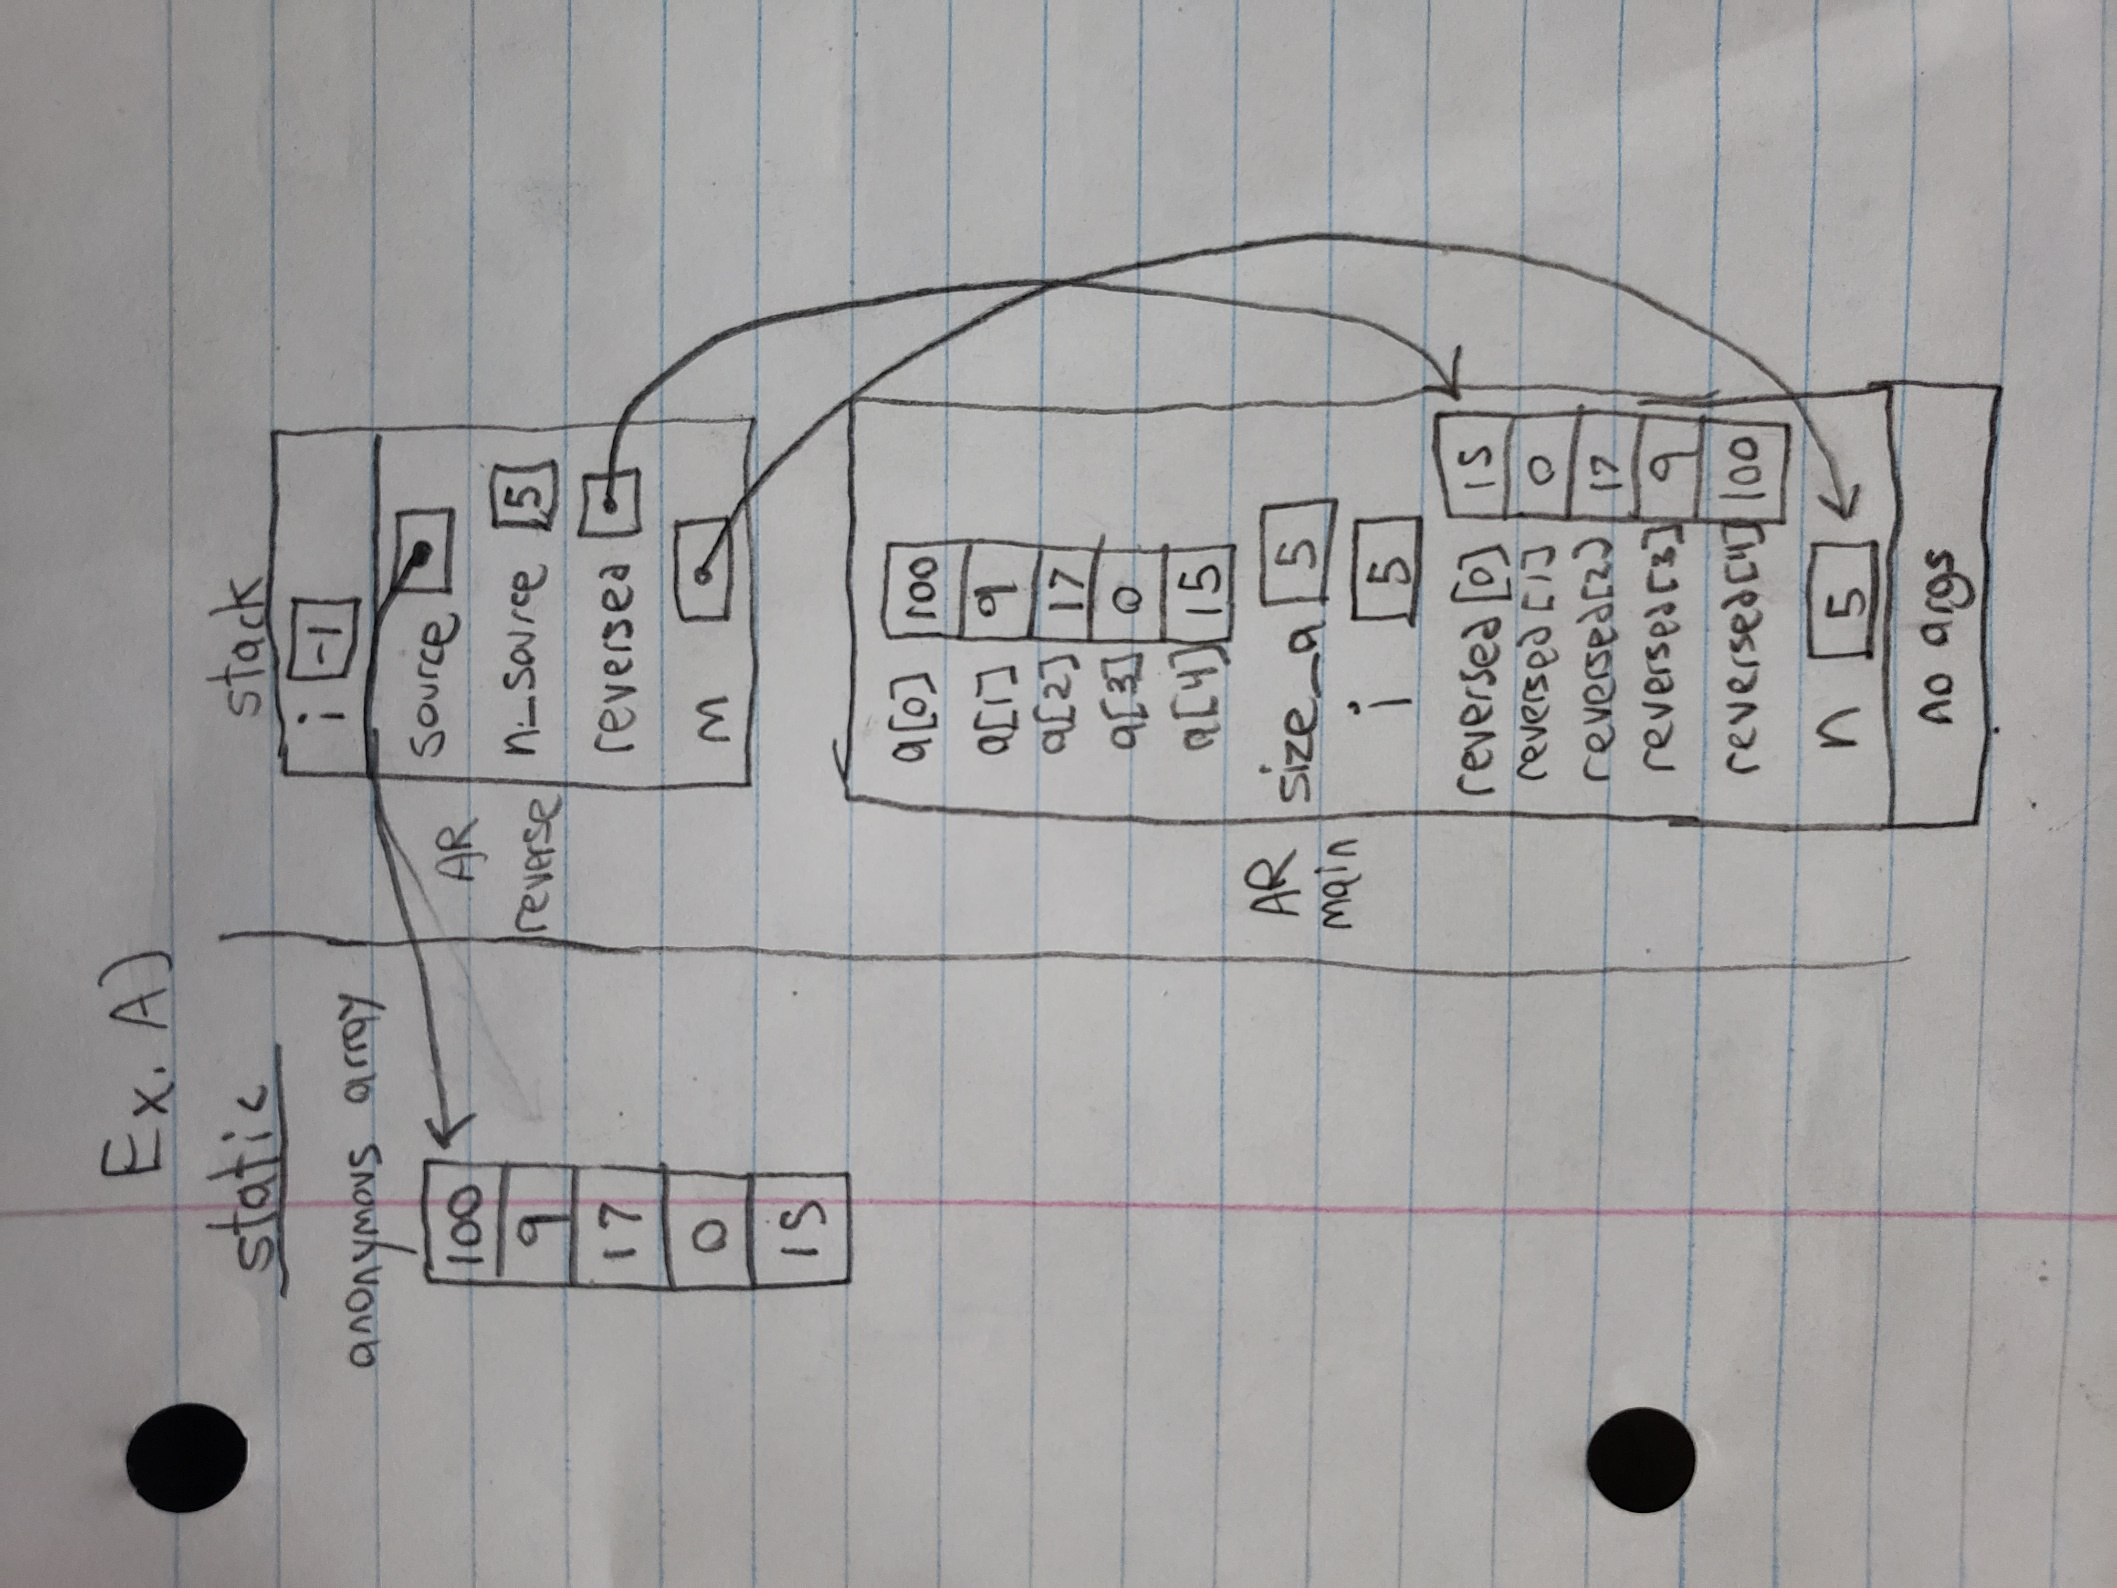 Ex. A)
static
stack
anonymous array
100
9
17
0
15
i -1
source
n_source 5
reversed
m
AR
reverse
a[0] 100
a[1] 9
a[2] 17
a[3] 0
a[4] 15
size_a 5
i 5
reversed[0] 15
reversed[1] 0
reversed[2] 17
reversed[3] 9
reversed[4] 100
n 5
no args
AR
main